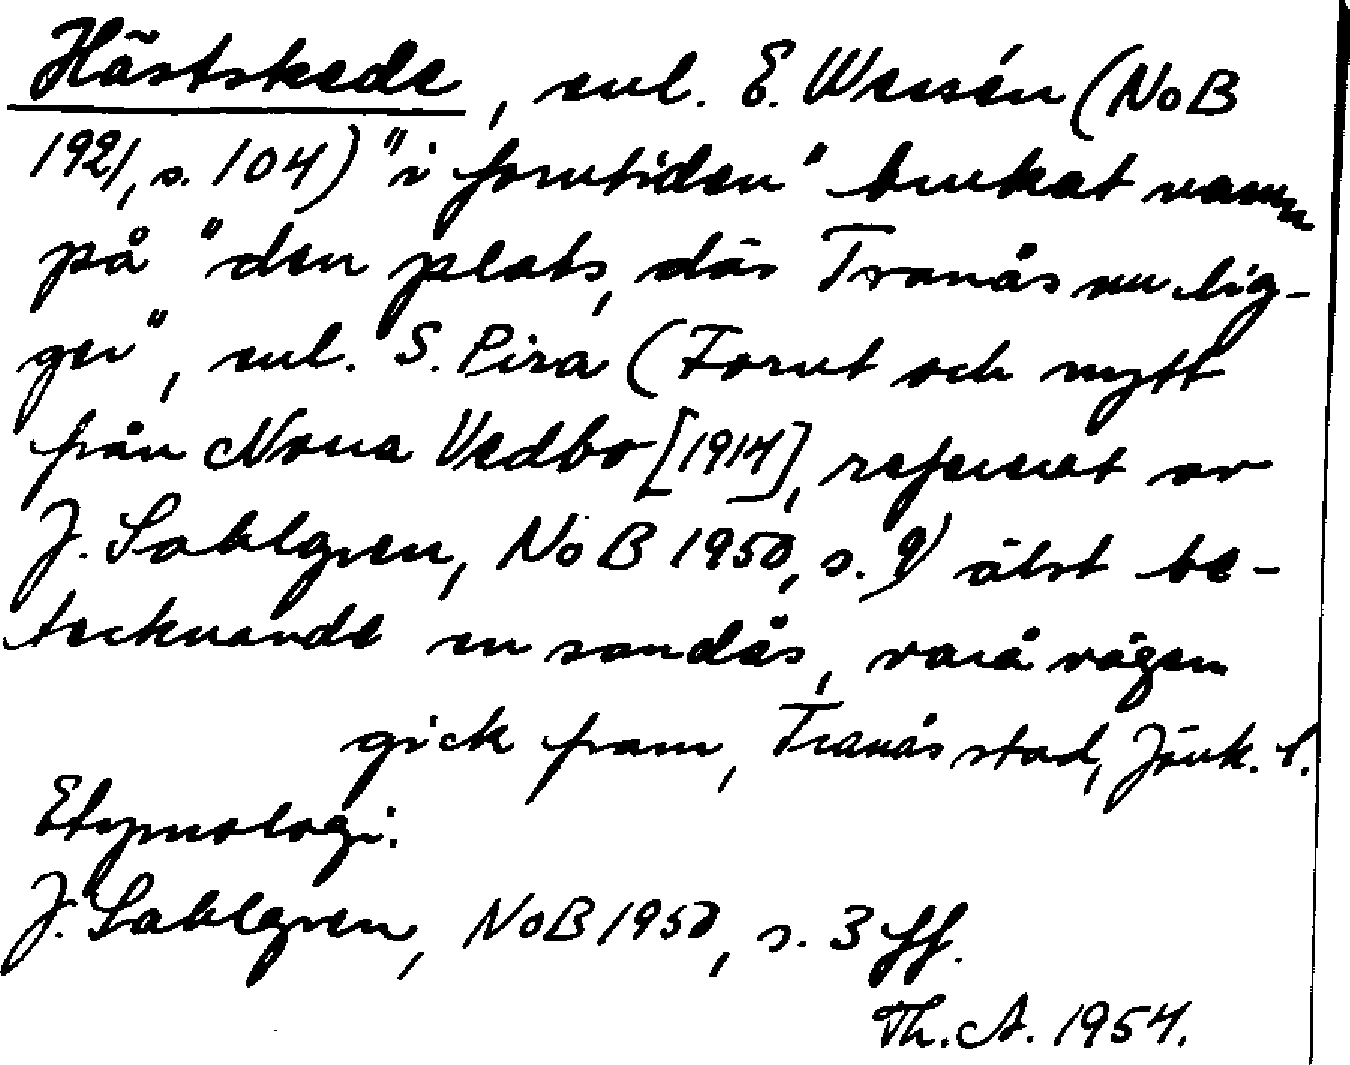 Hästskede, enl. E. Wessén (NoB
1921, s. 104) "i forntiden" brukat namn
på "den plats, där Tranås nu lig-
ger", enl. S. Pira (Fornt och nytt
från Norra Vedbo [1914], refererat av
J. Sahlgren, NoB 1950, s. 9) älst be-
tecknande en sandås, varå vägen
gick fram, Tranås stad, Jönk. l.
Etymologi.
J. Sahlgren, NoB 1950, s. 3 ff.
Th. A. 1954.